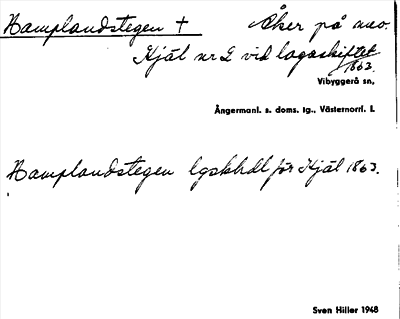 Hamplandstegen † Åker på
Hjäl nr 2 vid lagaskiftet
1863.
Vibyggerå sn,
Ångermanl. s. doms. tg., Västernorrl. l.
Hamplandstegen lgskhdl för Hjäl 1863.
Sven Hiller 1948